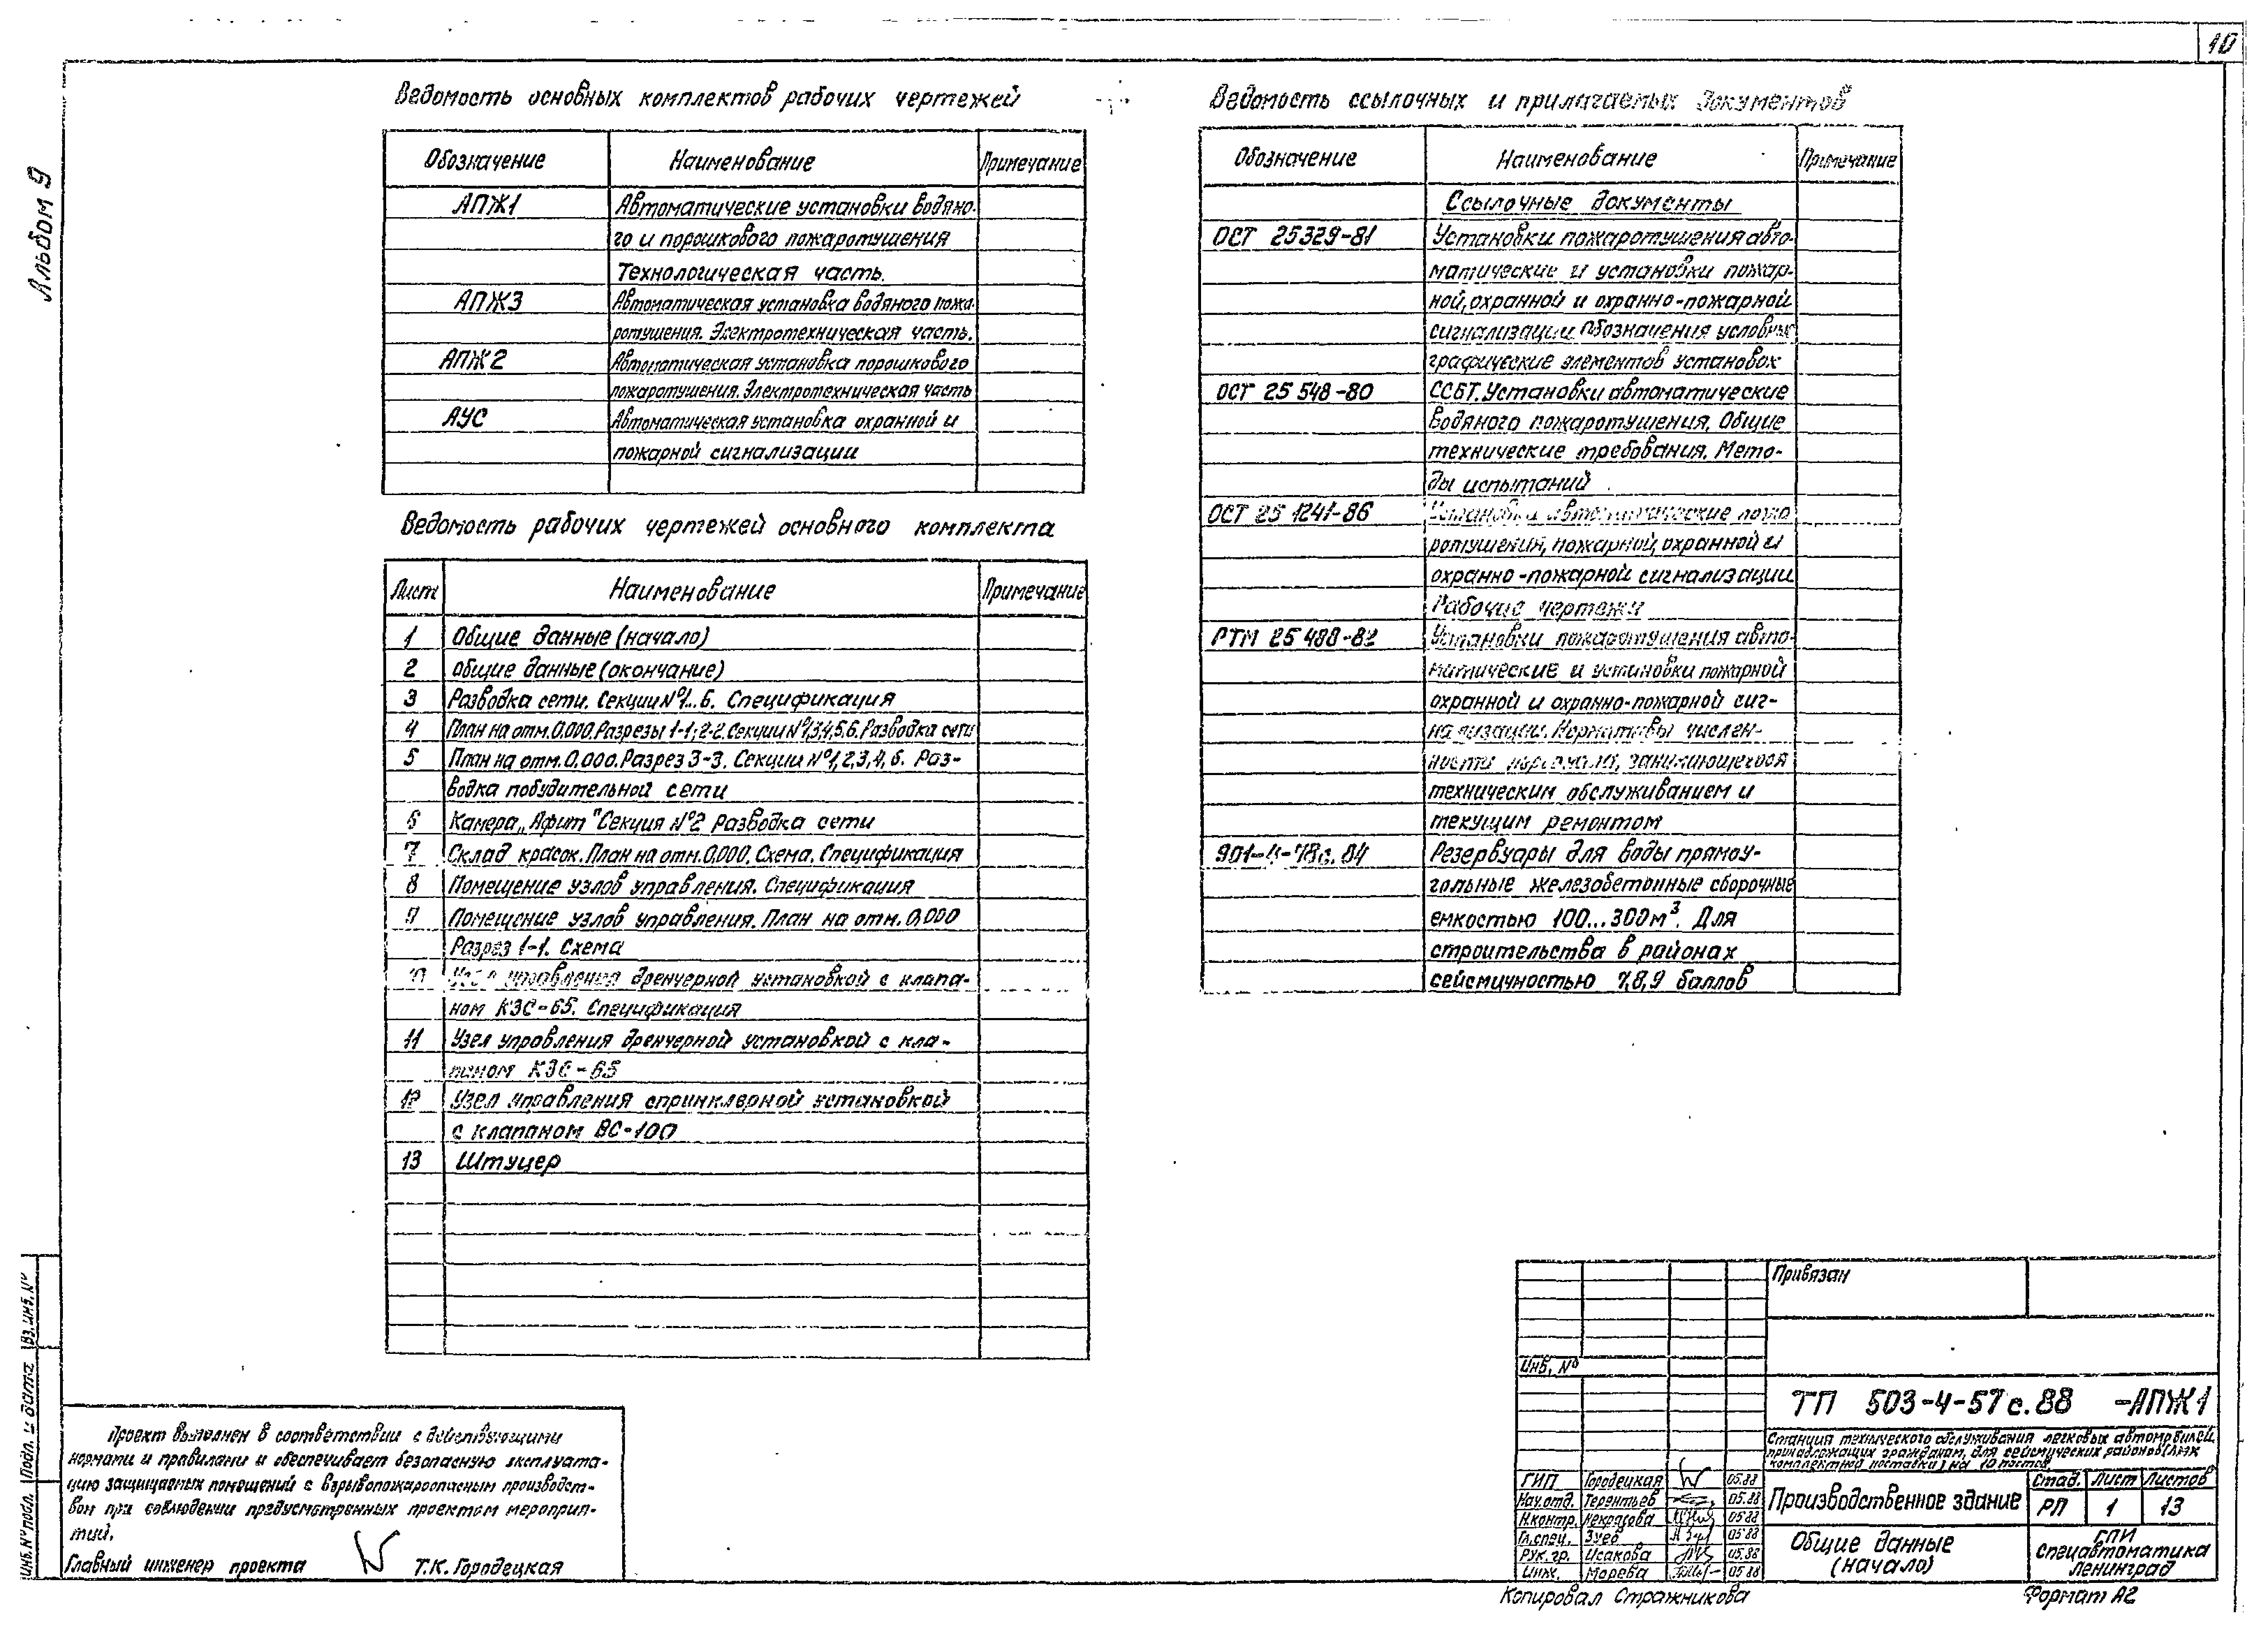 10
Альбом 9
Ведомость основных комплектов рабочих чертежей
Обозначение Наименование Примечание
АПЖ1 Автоматические установки водяно-
го и порошкового пожаротушения
Технологическая часть.
АПЖ3 Автоматическая установка водяного пожа-
ротушения. Электротехническая часть.
АПЖ2 Автоматическая установка порошкового
пожаротушения. Электротехническая часть
АУС Автоматическая установка охранной и
пожарной сигнализации
Ведомость рабочих чертежей основного комплекта
Лист Наименование Примечание
1 Общие данные (начало)
2 Общие данные (окончание)
3 Разводка сети. Секции №1...6. Спецификация
4 План на отм. 0,000. Разрезы 1-1; 2-2. Секции №1,3,4,5,6. Разводка сети
5 План на отм. 0,000. Разрез 3-3. Секции №1,2,3,4,6. Раз-
водка побудительной сети
6 Камера „Афит" Секция №2 Разводка сети
7 Склад красок. План на отм. 0,000. Схема. Спецификация
8 Помещение узлов управления. Спецификация
9 Помещение узлов управления. План на отм. 0,000
Разрез 1-1. Схема
10 Узел управления дренчерной установкой с клапа-
ном КЗС-65. Спецификация
11 Узел управления дренчерной установкой с кла-
паном КЗС-65
12 Узел управления спринклерной установкой
с клапаном ВС-100
13 Штуцер
Ведомость ссылочных и прилагаемых документов
Обозначение Наименование Примечание
Ссылочные документы
ОСТ 25329-81 Установки пожаротушения авто-
матические и установки пожар-
ной, охранной и охранно-пожарной
сигнализации. Обозначения условные
графические элементов установок
ОСТ 25 548-80 ССБТ. Установки автоматические
водяного пожаротушения. Общие
технические требования. Мето-
ды испытаний
ОСТ 25 1241-86 Установки автоматические пожа
ротушения, пожарной, охранной и
охранно-пожарной сигнализации.
Рабочие чертежи
РТМ 25 488-82 Установки пожаротушения авто-
матические и установки пожарной
охранной и охранно-пожарной сиг-
нализации. Нормативы числен-
ности персонала, занимающегося
техническим обслуживанием и
текущим ремонтом
901-4-78с.84 Резервуары для воды прямоу-
гольные железобетонные сборочные
емкостью 100...300м³. Для
строительства в районах
сейсмичностью 7,8,9 баллов
Проект выполнен в соответствии с действующими
нормами и правилами и обеспечивает безопасную эксплуата-
цию защищаемых помещений с взрывопожароопасным производст-
вом при соблюдении предусмотренных проектом мероприя-
тий.
Главный инженер проекта Т.К. Городецкая
Инв. № подл. Подп. и дата Вз. инв. №
Привязан
Инв. №
ТП 503-4-57с.88 -АПЖ1
Станция технического обслуживания легковых автомобилей,
принадлежащих гражданам, для сейсмических районов (ЛМК
комплектной поставки) на 10 постов.
ГИП Городецкая 05.88
Нач.отд. Терентьев 05.88
Н.контр. Некрасова 05.88
Гл.спец. Зуев 05.88
Рук.гр. Исакова 05.88
Инж. Морева 05.88
Производственное здание
Стад. Лист Листов
РП 1 13
Общие данные
(начало)
ГПИ
Спецавтоматика
Ленинград
Копировал Стражникова
Формат А2